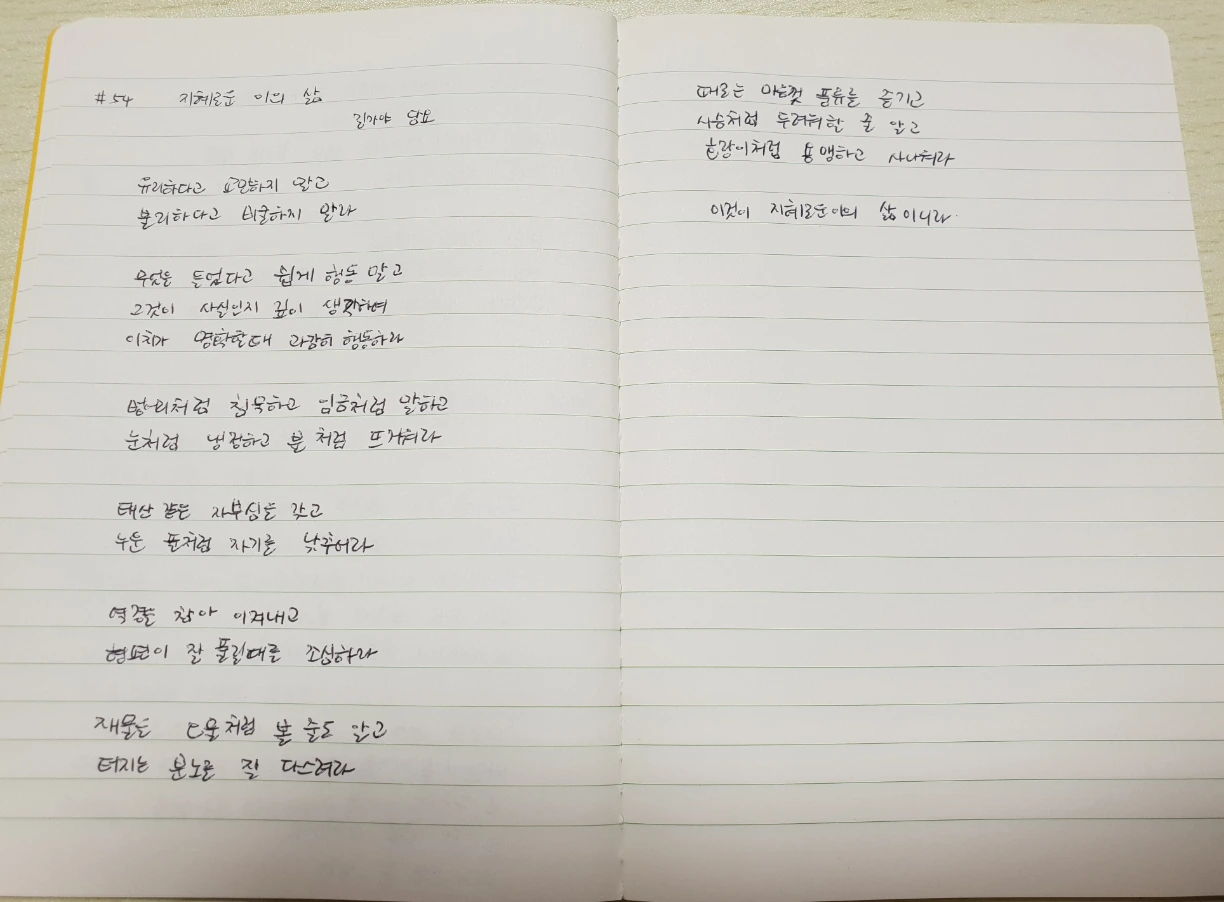 #54 지혜로운 이의 삶
잡아야 담요
유리하다고 교만하지 말고
불리하다고 비굴하지 말라
무엇을 들었다고 쉽게 행동 말고
그것이 사실인지 깊이 생각하여
이치가 명확할때 과감히 행동하라
벙어리처럼 침묵하고 임금처럼 말하고
눈처럼 냉정하고 불처럼 뜨거워라
태산 같은 자부심을 갖고
누운 풀처럼 자기를 낮추어라
역경을 참아 이겨내고
형편이 잘 풀릴때를 조심하라
재물을 오물처럼 볼 줄도 알고
터지는 분노를 잘 다스려라
때로는 마음껏 풍류를 즐기고
사슴처럼 두려워할 줄 알고
호랑이처럼 용맹하고 사나워라
이것이 지혜로운이의 삶이니라.